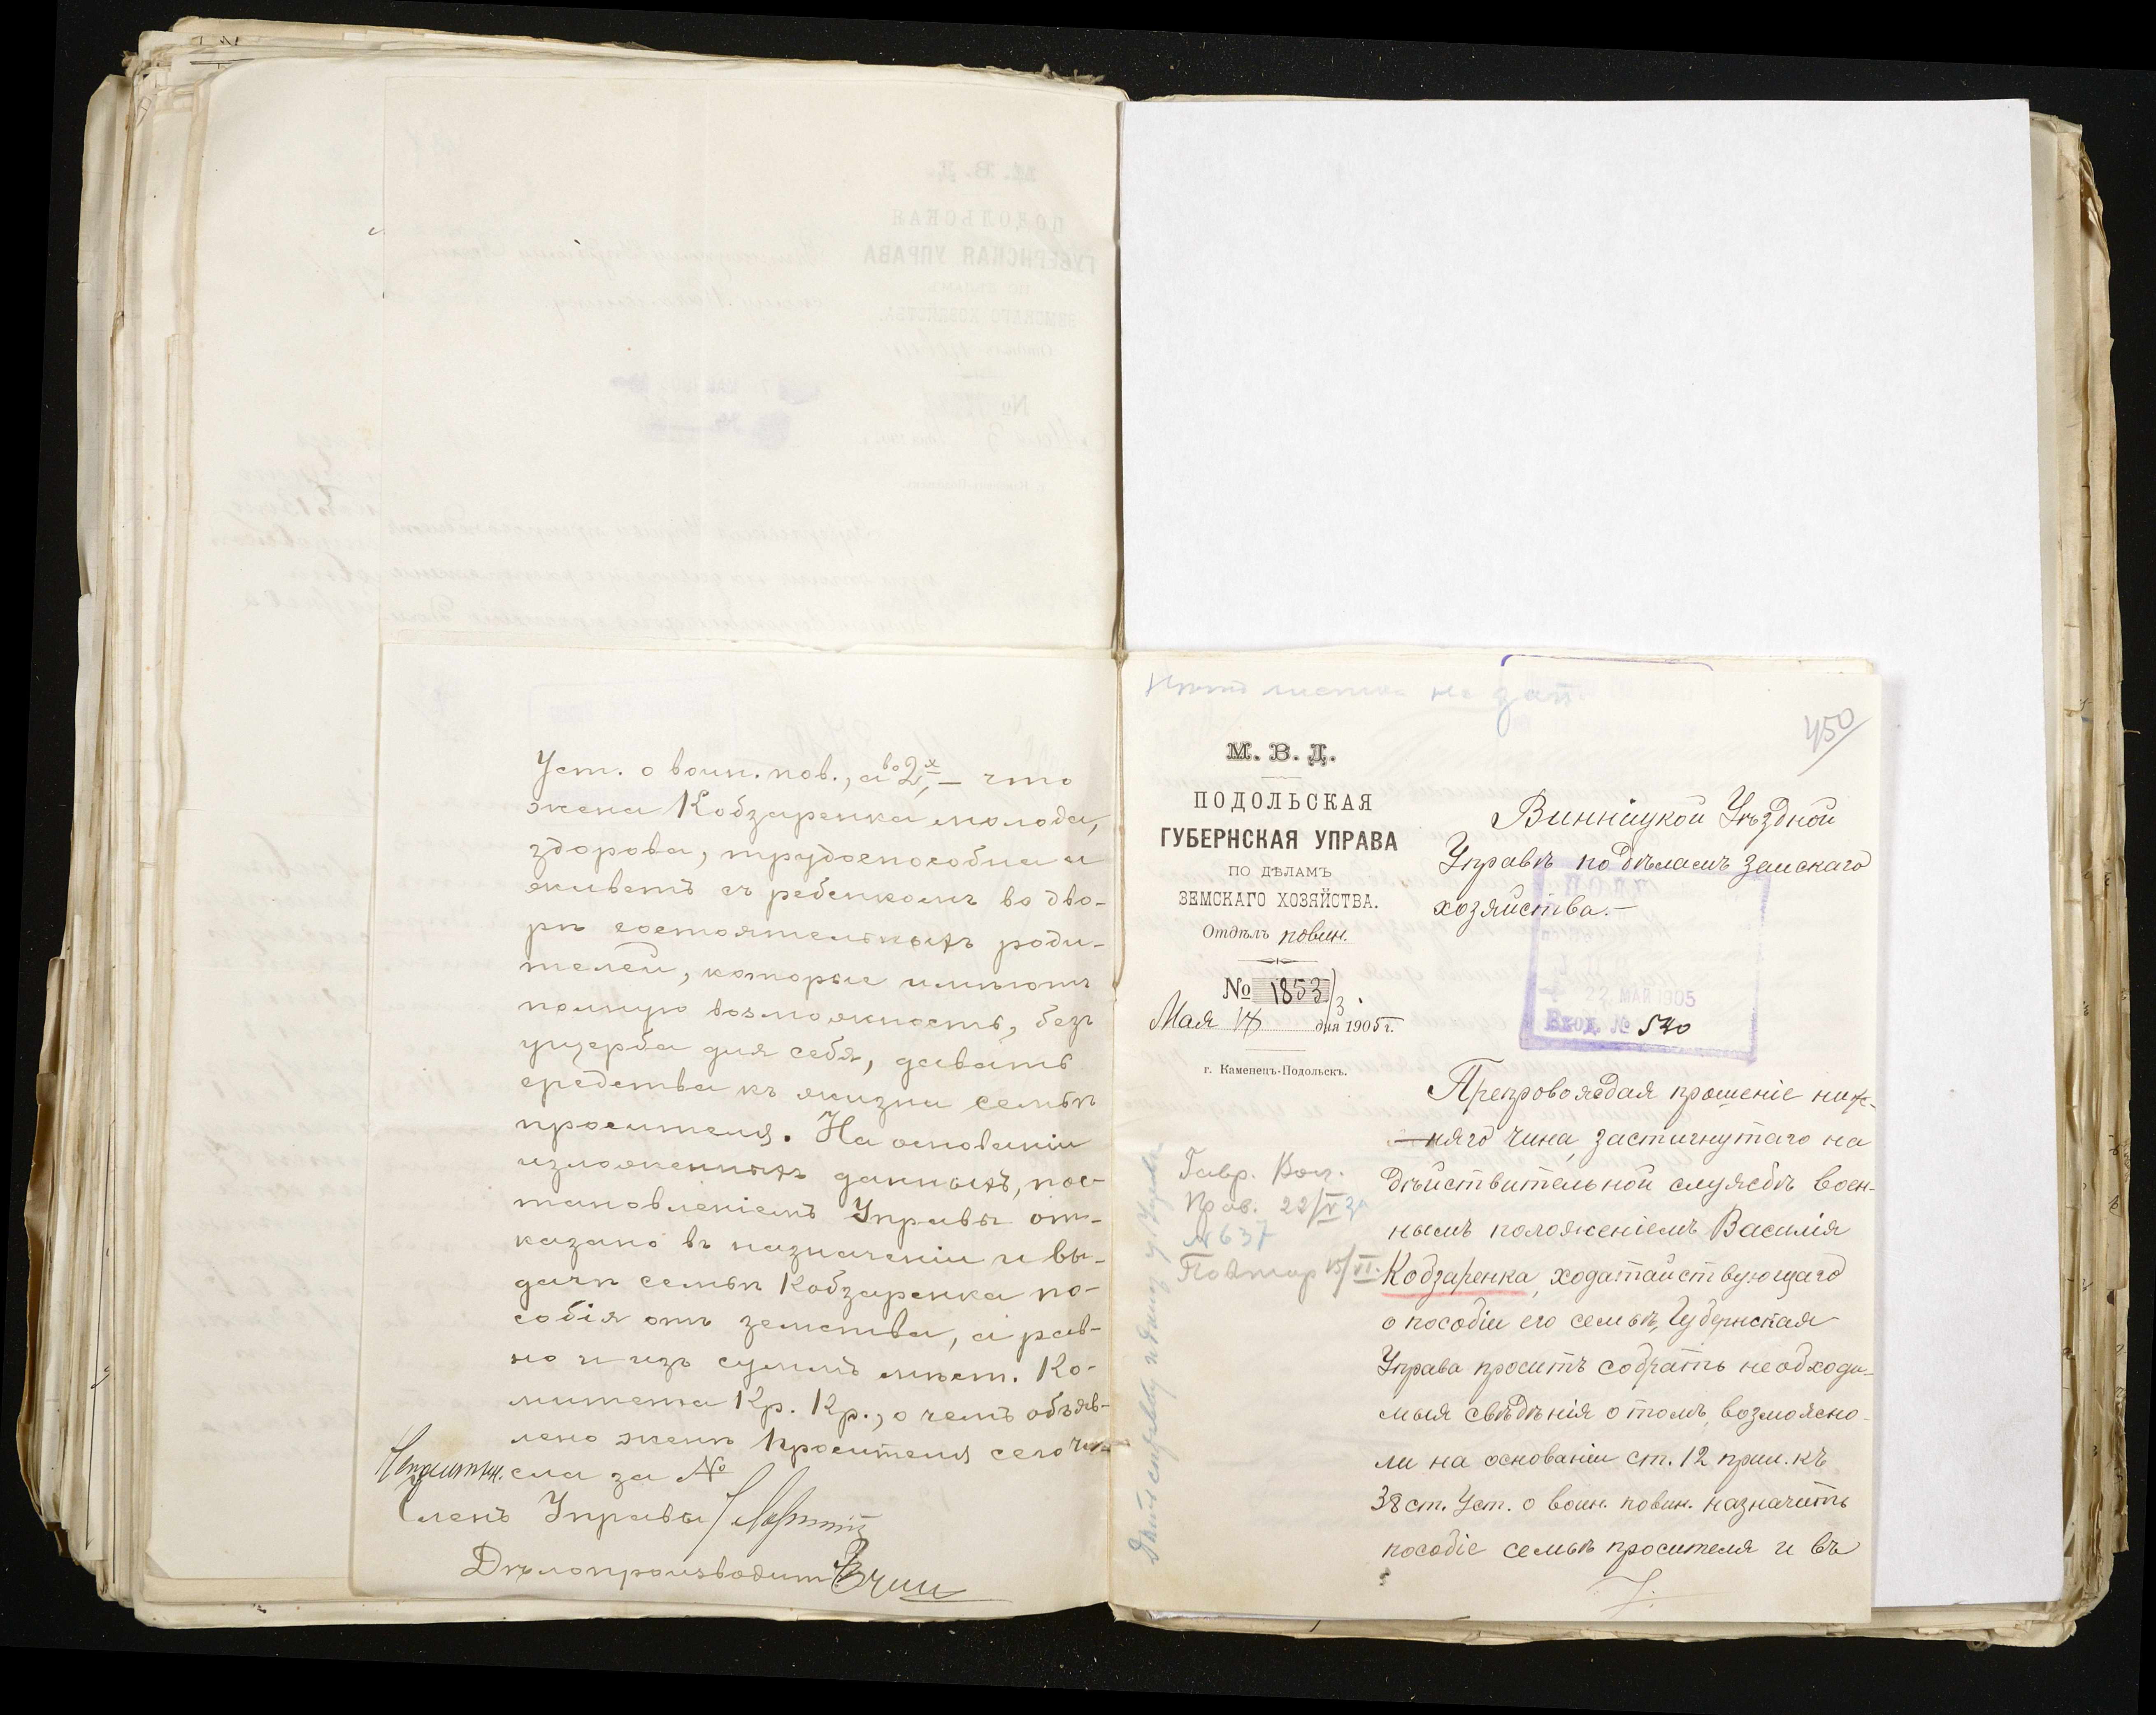 Уст. о воин. пов., а во 2х, – что
жена Кобзаренка молода,
здорова, трудоспособна и
живетъ съ ребенкомъ во дво-
рѣ состоятельныхъ роди-
телей, которые имѣютъ
полную возможность, безъ
ущерба для себя, давать
средства къ жизни семьѣ
просителя. На основаніи
изложенныхъ данныхъ, пос-
тановленіемъ Управы от-
казано въ назначеніи и вы-
дачѣ семьѣ Кобзаренка по-
собія отъ земства, а рав-
но и изъ суммъ мѣст. Ко-
митета Кр. Кр., о чемъ объяв-
лено женѣ просителя сего чи-
сла за №
Членъ Управы
Дѣлопроизводит
450
М. В. Д.
ПОДОЛЬСКАЯ
ГУБЕРНСКАЯ УПРАВА
ПО ДѢЛАМЪ
ЗЕМСКАГО ХОЗЯЙСТВА.
Отдѣлъ повин.
№ 1853/3
Мая 17 дня 1905 г.
г. Каменецъ-Подольскъ.
Винницкой Уѣздной
Управѣ по дѣламъ земскаго
хозяйства.–
22 МАЙ 1905
Вход. № 540
Препровождая прошеніе ниж-
няго чина, застигнутаго на
дѣйствительной службѣ воен-
нымъ положеніемъ Василія
Кобзаренка, ходатайствующаго
о пособіи его семьѣ, Губернская
Управа проситъ собрать необходи-
мыя свѣдѣнія о томъ, возможно-
ли на основаніи ст. 12 прил. къ
38 ст. Уст. о воин. повин. назначить
пособіе семьѣ просителя и въ
Гавр. Вол.
Прав. 22/V за
№ 637
Повтор 15/VI.